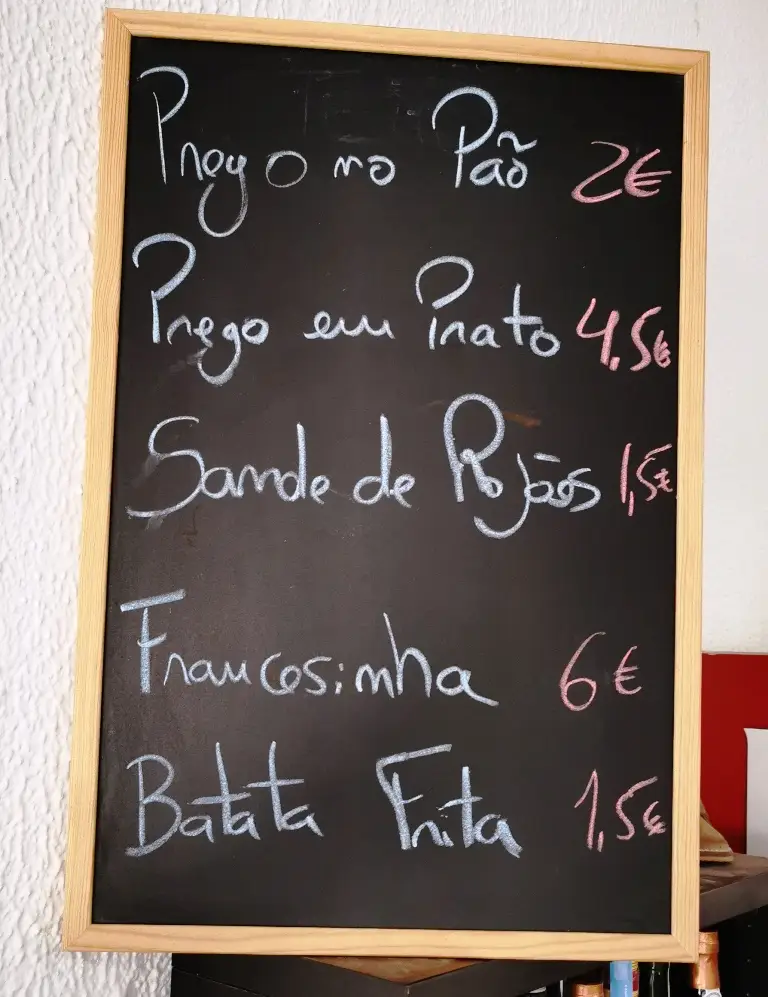 Prego no Pão 2€
Prego em Prato 4,5€
Sande de Rojões 1,5€
Francesinha 6€
Batata Frita 1,5€